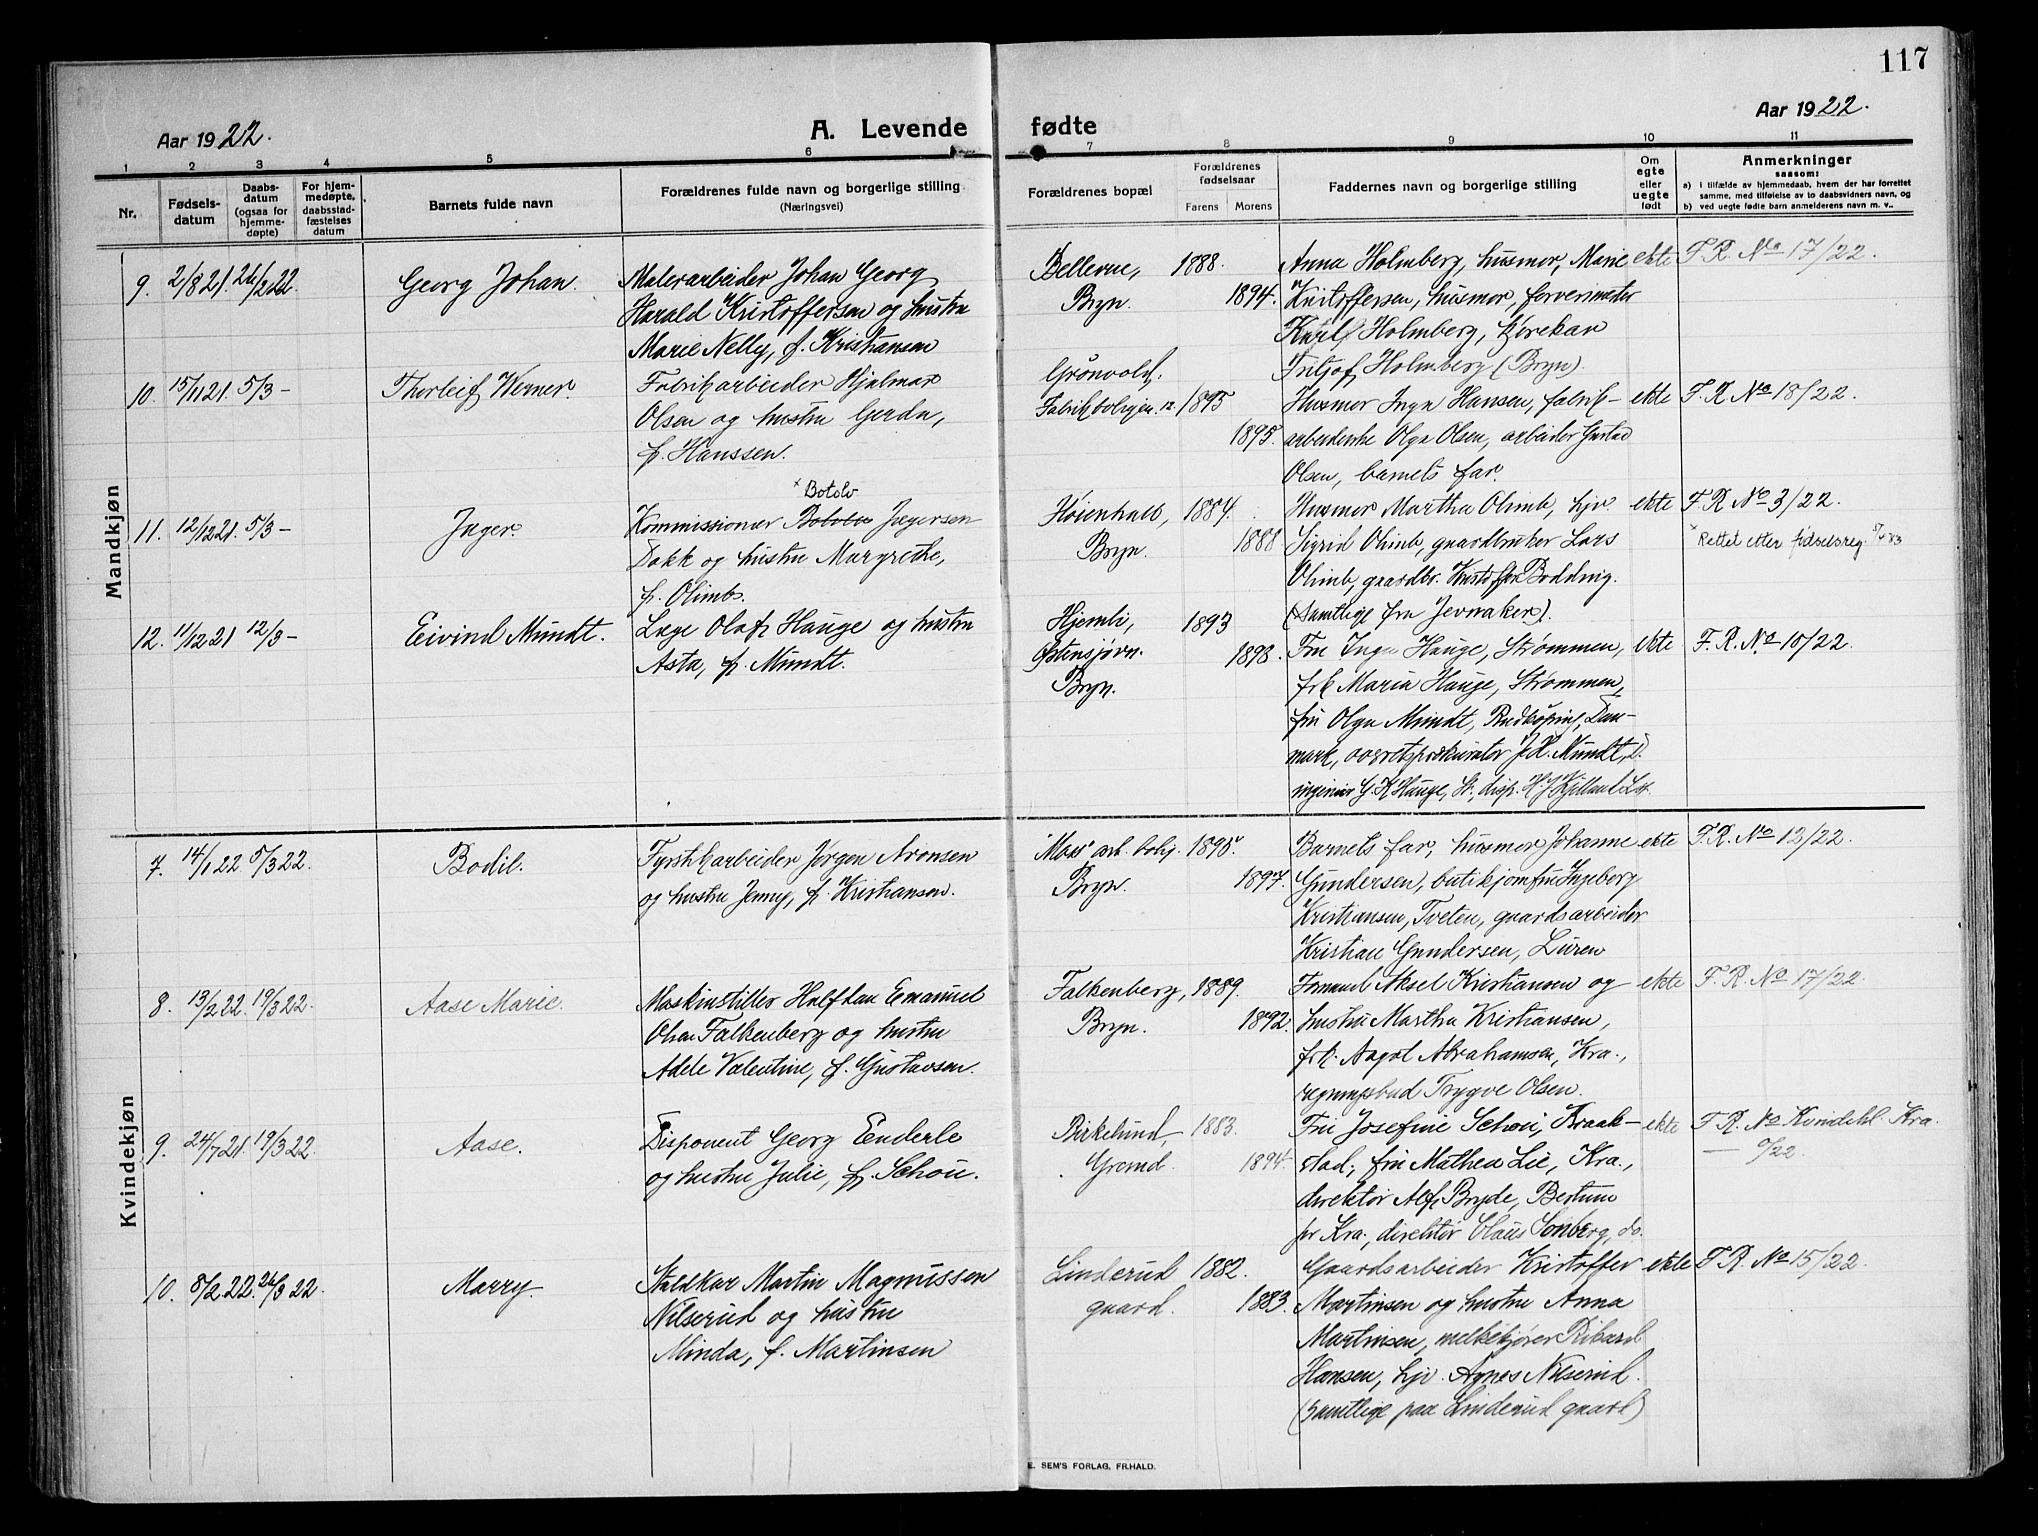 117
Aar 1922.
A. Levende
fødte
Aar 1922.
1 2 3 4 5 6 7 8 9 10 11
Nr.
Fødsels-
datum
Daabs-
datum
(ogsaa for
hjemme-
døpte)
For hjem-
medøpte,
daabsstad-
fæstelses
datum
Barnets fulde navn
Forældrenes fulde navn og borgerlige stilling
(Næringsvei)
Forældrenes bopæl
Forældrenes
fødselsaar
Farens Morens
Faddernes navn og borgerlige stilling
Om
egte
eller
uegte
født
Anmerkninger
saasom:
a) i tilfælde av hjemmedaab, hvem der har forrettet
samme, med tilføielse av to daabsvidners navn, og
b) ved uegte fødte barn anmelderens navn m. v..
Mandkjøn
9. 2/8 21. 26/2 22. Georg Johan.
Malerarbeider Johan Georg
Harald Kristoffersen og hustru
Marie Nelly, f. Kristiansen
Bellevue,
Bryn.
1888.
1894.
Anna Holmberg, husmor, Marie
Kristoffersen, husmor, farverimester
Karl Holmberg, kjørekar
Fritjof Holmberg (Bryn).
ekte
F. R. No 17/22.
10. 15/11 21. 5/3 - Thorleif Werner.
Fabrikarbeider Hjalmar
Olsen og hustru Gerda,
f. Hanssen.
Grønvold,
Fabrikboligen 12.
1895
1895.
Husmor Inga Hansen, fabrik-
arbeiderske Olga Olsen, arbeider Gustav
Olsen, barnets far.
ekte
F. R. No 18/22.
11. 12/12 21. 5/3 - Inger.
x Botolv
Kommissionær Jægersen
Dokk og hustru Margrethe,
f. Olimb.
Høienhall,
Bryn.
1884.
1888
Husmor Martha Olimb, hjv.
Sigrid Olimb, gaardbruker Lars
Olimb, gaardbr. Kristoffer Boddvig.
(Samtlige fra Jevnaker).
ekte
F. R. No 3/22.
x Rettet etter fødselsreg.
12. 11/12 21 12/3 - Eivind Mundt.
Læge Olaf Hauge og hustru
Asta, f. Mundt.
Hjemli,
Østensjøvn.
Bryn.
1893
1898.
Fru Inga Hauge, Strømmen,
frk Maria Hauge, Strømmen,
fru Olga Mundt, Rudkøping, Dan-
mark, overretsprokurator J. H. Mundt, D.
ingeniør G. K Hauge, St., disp. H. J. Kjelland
ekte
F. R. No 10/22.
Kvindekjøn
7. 14/1 22. 5/3 22. Bodil.
Fyrstikarbeider Jørgen Aronsen
og hustru Jenny, f. Kristiansen.
"Mos" arb. bolig.
Bryn.
1895.
1897.
Barnets far, husmor Johanne
Gundersen, butikjomfru Ingeborg
Kristiansen, Tveten, gaardsarbeider
Kristian Gundersen, Luren
ekte
F. R. No 12/22.
8. 13/2 22. 19/3 22. Aase Marie.
Maskinstiller Halfdan Emanuel
Olsen Falkenberg og hustru
Adele Valentine, f. Gustavsen.
Falkenberg,
Bryn.
1889.
1892.
Formand Aksel Kristiansen og
hustru Martha Kristiansen,
frk. Aagot Abrahamsen, Kra.,
regningsbud Trygve Olsen.
ekte
F. R. No 17/22.
9. 24/7 21. 19/3 22. Aase.
Disponent Georg Enderle
og hustru Julie, f. Schou.
Birkelund,
Grorud.
1883.
1894.
Fru Josefine Schou, Kraak-
stad, fru Mathea Lie, Kra.,
direktør Alf Bryde, Bestum
pr Kra., direktør Claus Sonberg, do.
ekte
F. R. No Kvindekl. Kra.
10. 8/2 22. 26/3 22. Marry.
Staldkar Martin Magnussen
Nilserud og hustru
Minda, f. Martinsen
Linderud
gaard.
1882.
1883.
Gaardsarbeider Kristoffer
Martinsen og hustru Anna
Martinsen, melkekjører Rikard
Hansen, hjv. Agnes Nilserud.
(samtlige paa Linderud gaard)
ekte
F. R. No 15/22.
E. SEM'S FORLAG, FR.HALD.